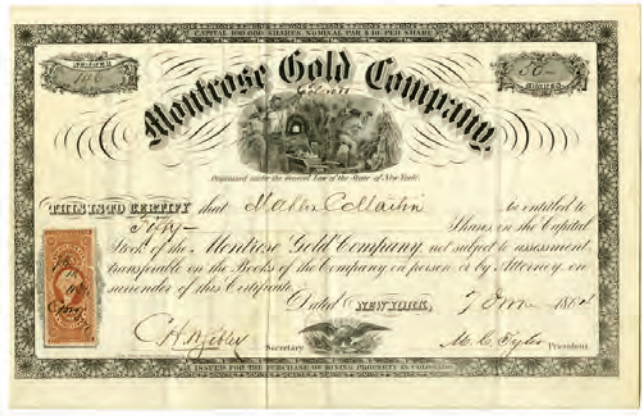 CAPITAL 100,000 SHARES, NOMINAL PAR $10 PER SHARE
NUMBER
50
SHARES
Montrose Gold Company.
Organized under the General Law of the State of New York.
THIS IS TO CERTIFY that is entitled to
Fifty Shares in the Capital
Stock of the Montrose Gold Company, not subject to assessment,
transferable on the Books of the Company in person or by Attorney, on
surrender of this Certificate.
Dated NEW YORK, 7 186
C. H. Sibley Secretary M. C. Tyler President.
ISSUED FOR THE PURCHASE OF MINING PROPERTY IN COLORADO